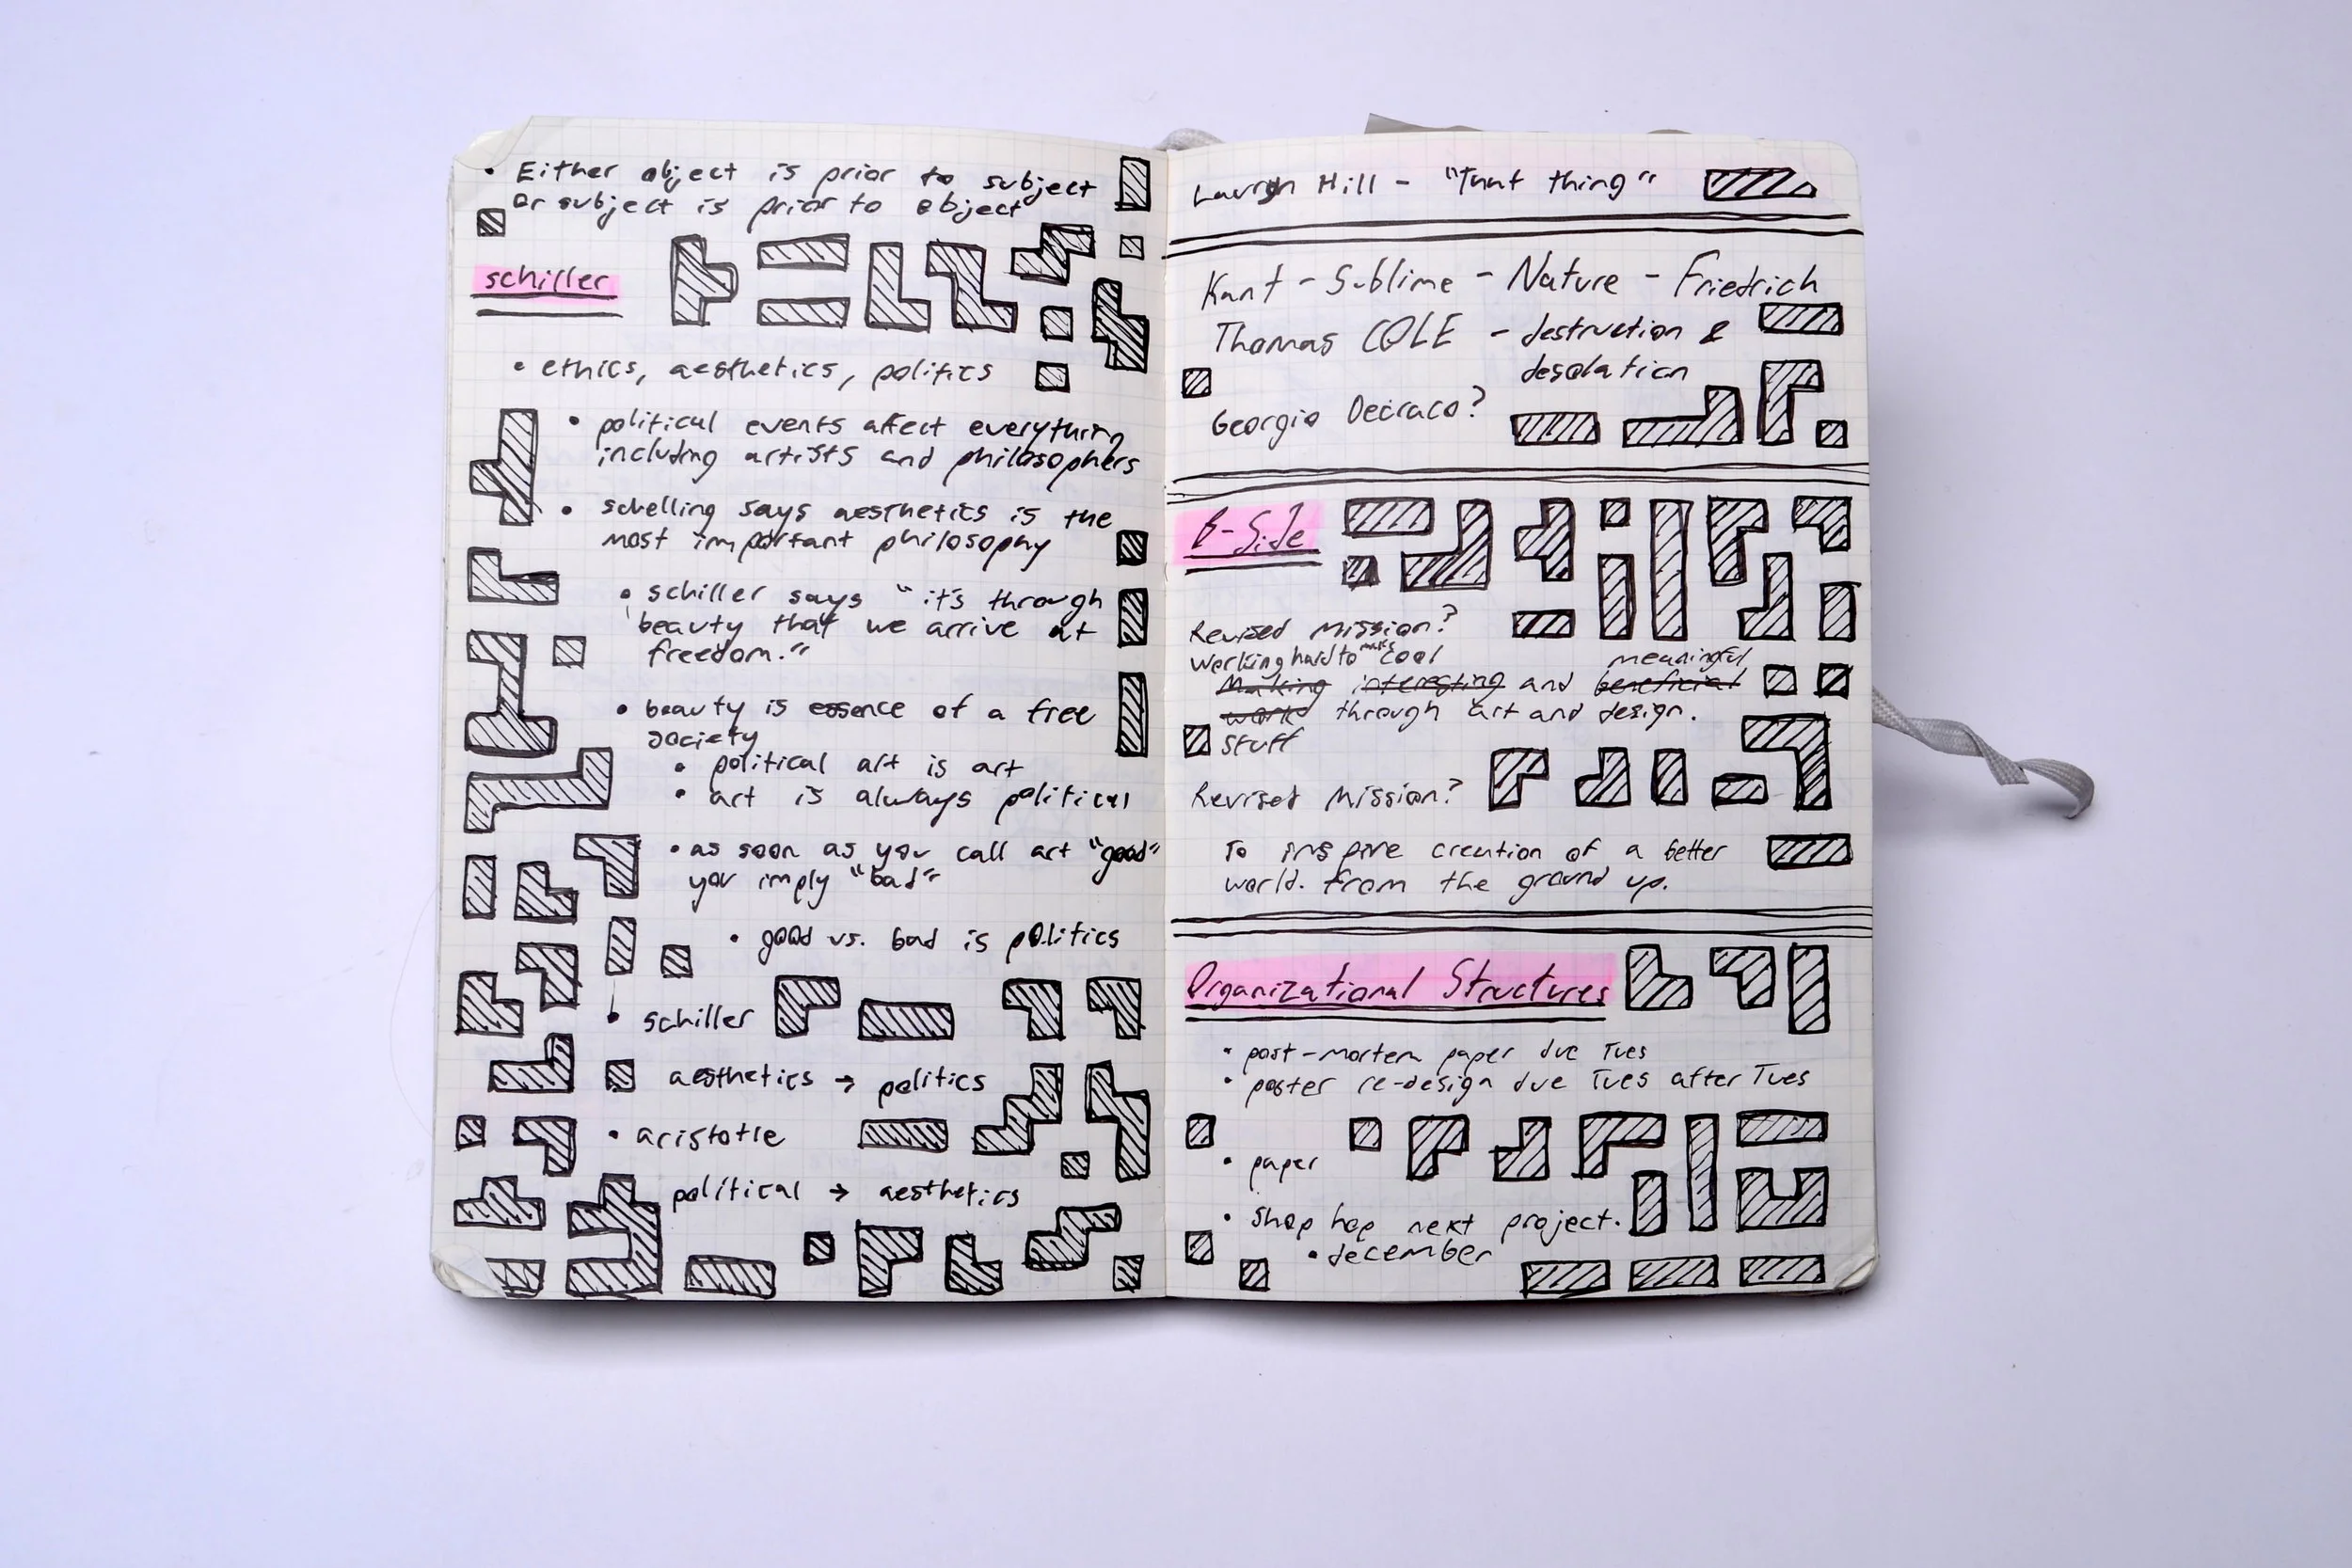 • Either object is prior to subject
or subject is prior to object
schiller
• ethics, aesthetics, politics
• political events affect everything
including artists and philosophers
• schelling says aesthetics is the
most important philosophy
• schiller says "it's through
beauty that we arrive at
freedom."
• beauty is essence of a free
society
• political art is art
• art is always political
• as soon as you call art "good"
you imply "bad"
• good vs. bad is politics
• schiller
aesthetics → politics
• aristotle
political → aesthetics
Lauryn Hill - "That thing"
Kant - Sublime - Nature - Friedrich
Thomas COLE - destruction &
desolation
Georgio Deciraco?
B-Side
Revised Mission?
working hard to make cool meaningful
making interesting and beneficial
work through art and design.
stuff
Revised Mission?
To inspire creation of a better
world. from the ground up.
Organizational Structures
• post-mortem paper due Tues
• poster re-design due Tues after Tues
• paper
• shop hop next project.
• december